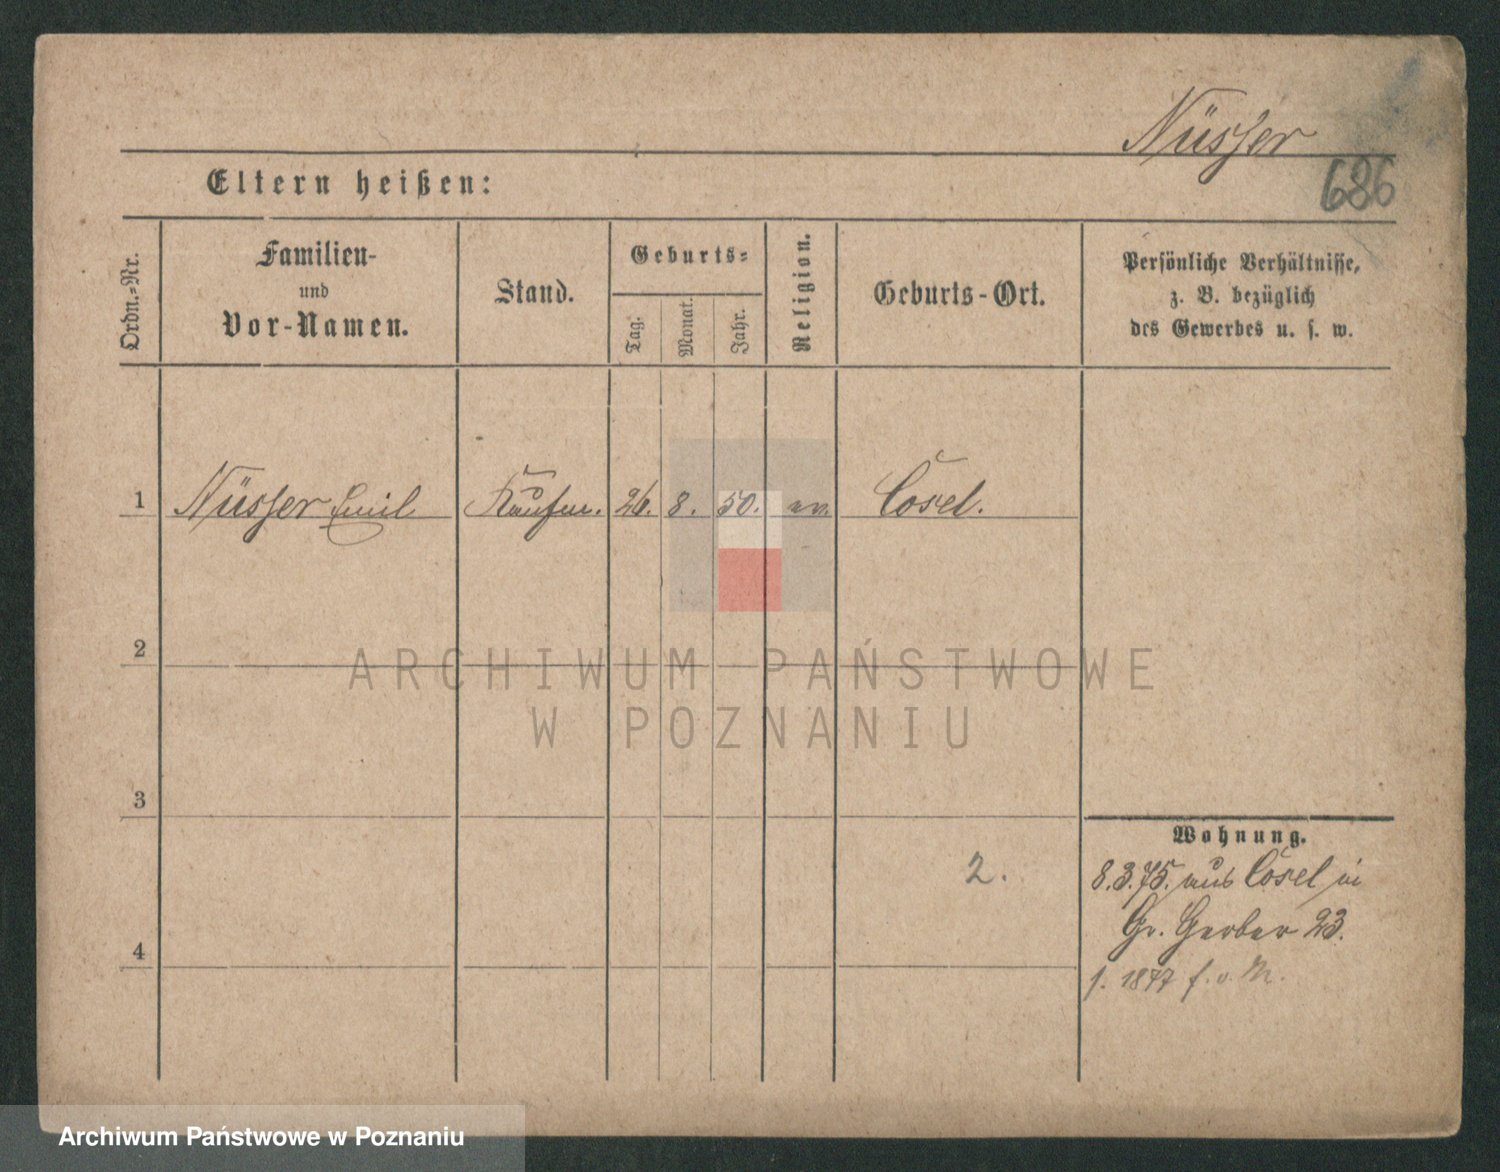 Nüsser
686
Eltern heißen:
Ordn.-Nr.
Familien-
und
Vor-Namen.
Stand.
Geburts-
Tag.
Monat.
Jahr.
Religion.
Geburts-Ort.
Persönliche Verhältnisse,
z. B. bezüglich
des Gewerbes u. s. w.
1 Nüsser Emil Kaufm. 26. 8. 50. ev. Cosel.
2
ARCHIWUM PAŃSTWOWE
W POZNANIU
3
Wohnung.
2.
8.3.75. aus Cosel in
Gr. Gerber 23.
4
f. 1877 f. v. M.
Archiwum Państwowe w Poznaniu